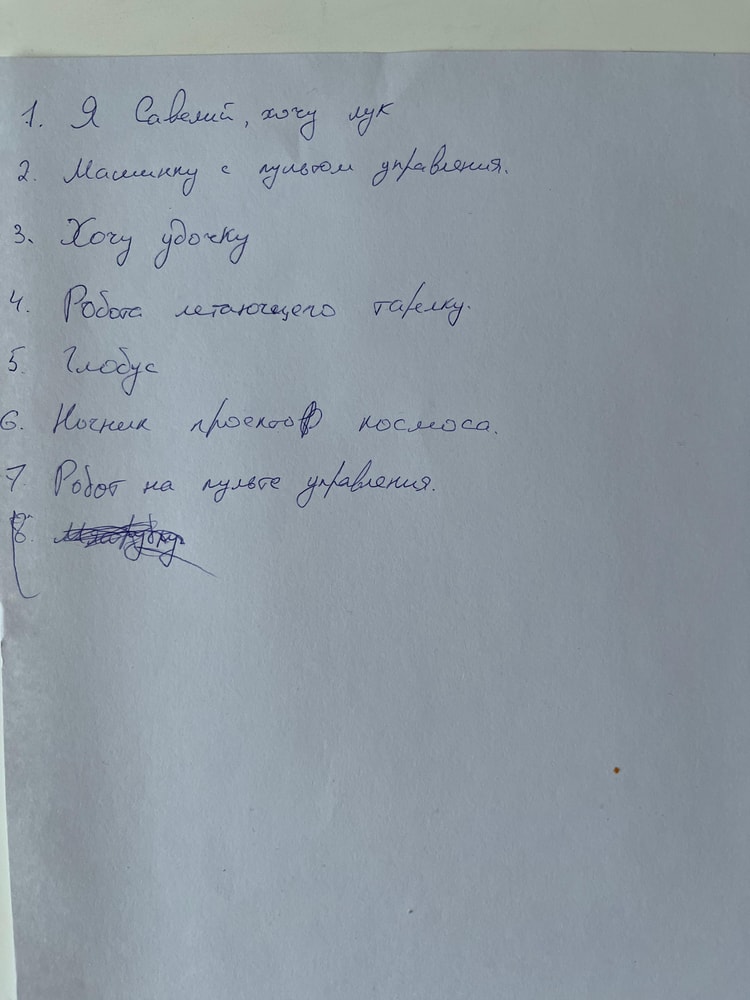 1. Я Савелий, хочу лук
2. Машинку с пультом управления.
3. Хочу удочку
4. Робота летающего тарелку.
5. Глобус
6. Ночник проектор космоса.
7. Робот на пульте управления.
8.